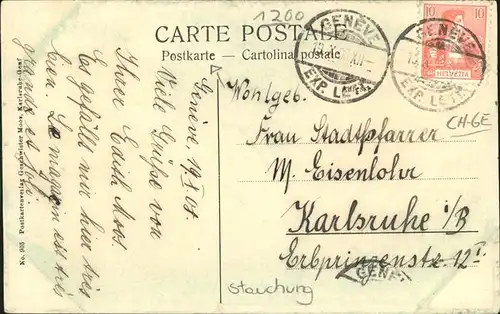 1200
CARTE POSTALE
Postkarte — Cartolina postale
GENÈVE
EXP. LETTR.
GENÈVE
EXP. LETTR.
10 10
HELVETIA
CH-GE
Genève 19.X.07.
Viele Grüße von
Ihrer Edith Moos.
Es gefällt mir hier très
bien. Le magasin est très
grand et joli.
Wohlgeb.
Frau Stadtpfarrer
M. Eisenlohr
Karlsruhe i/B
Erbprinzenstr. 12 I.
GENÈ
Stauchung
No. 905 Postkartenverlag Geschwister Moos, Karlsruhe-Genf